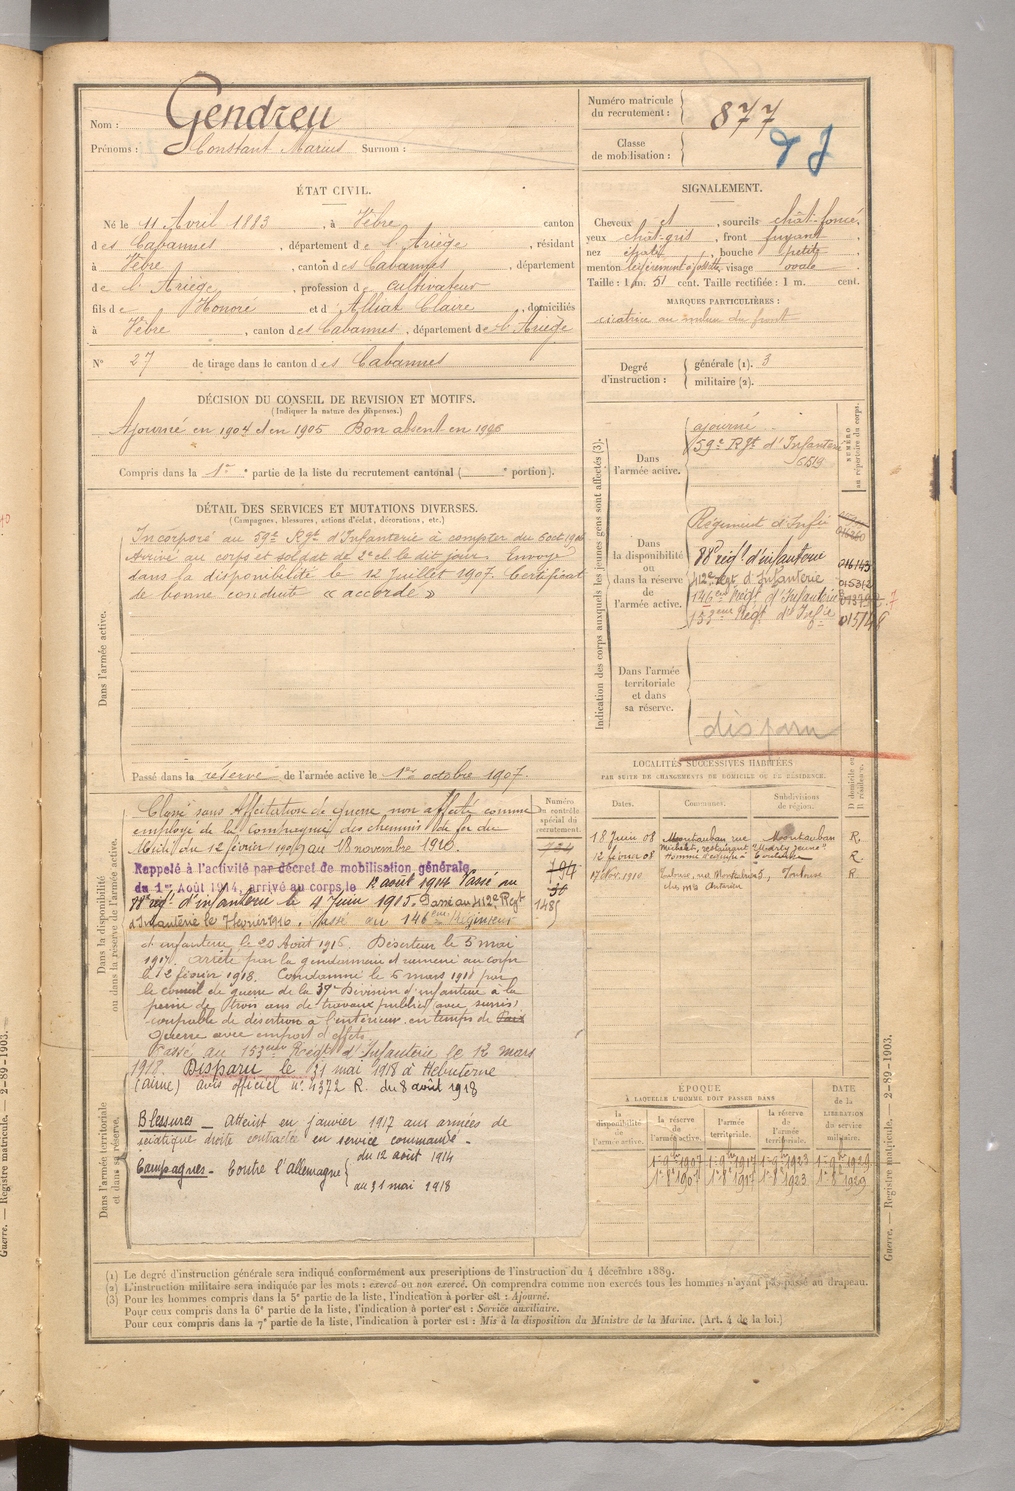 Nom : Gendreu
Prénoms : Constant Marius Surnom :
Numéro matricule du recrutement : 877
Classe de mobilisation :
ÉTAT CIVIL.
Né le 11 Avril 1883, à Vèbre, canton
des Cabannes, département de l'Ariège, résidant
à Vèbre, canton des Cabannes, département
de l'Ariège, profession de cultivateur
fils de Honoré et d'Alliat Claire, domiciliés
à Vèbre, canton des Cabannes, département de l'Ariège
N° 27 de tirage dans le canton des Cabannes
SIGNALEMENT.
Cheveux et, sourcils chât-foncé,
yeux chât-gris, front fuyant,
nez épaté, bouche petite,
menton légèrement à fossette, visage ovale.
Taille : 1 m. 51 cent. Taille rectifiée : 1 m. cent.
MARQUES PARTICULIÈRES :
cicatrice au milieu du front
Degré d'instruction : générale (1). 3
militaire (2).
DÉCISION DU CONSEIL DE REVISION ET MOTIFS.
(Indiquer la nature des dispenses.)
Ajourné en 1904 et en 1905 Bon absent en 1906
Compris dans la 1re partie de la liste du recrutement cantonal ( portion).
DÉTAIL DES SERVICES ET MUTATIONS DIVERSES.
(Campagnes, blessures, actions d'éclat, décorations, etc.)
Dans l'armée active.
Incorporé au 59e Rgt d'Infanterie à compter du 6 oct 1906
Arrivé au corps et soldat de 2e cl le dit jour. Envoyé
dans la disponibilité le 12 Juillet 1907. Certificat
de bonne conduite « accordé »
Passé dans la réserve de l'armée active le 1er octobre 1907.
Indication des corps auxquels les jeunes gens sont affectés (3).
NUMÉRO au répertoire du corps.
Dans l'armée active.
ajourné
59e Rgt d'Infanterie
6519
Dans la disponibilité ou dans la réserve de l'armée active.
Régiment d'Infie
88e régt d'infanterie 016145
412e régt d'Infanterie 015312
146eme Régt d'Infanterie
153eme Régt d'Infie 015748
Dans l'armée territoriale et dans sa réserve.
disparu
Dans la disponibilité ou dans la réserve de l'armée active.
Classé sans affectation de guerre non affecté comme
employé de la Compagnie des chemins de fer du
Midi du 12 février 1909 au 18 novembre 1910.
Rappelé à l'activité par décret de mobilisation générale
du 1er Août 1914, arrivé au corps le 12 août 1914 Passé au
88e régt d'infanterie le 4 Juin 1915. Passé au 412e Régt
d'Infanterie le 7 février 1916. Passé au 146eme Régiment
d'infanterie le 20 Août 1916. Déserteur le 5 mai
1917. arrêté par la gendarmerie et ramené au corps
le 2 février 1918. Condamné le 6 mars 1918 par
le conseil de guerre de la 39e Division d'infanterie à la
peine de trois ans de travaux publics avec sursis,
coupable de désertion à l'intérieur en temps de Paix
Guerre avec emport d'effets
Passé au 153eme Régt d'Infanterie le 12 mars
1918. Disparu le 31 mai 1918 à Hébuterne
(Aisne) avis officiel n° 4372 R. du 8 août 1918
Numéro du contrôle spécial du recrutement.
724
794
1485
Dans l'armée territoriale et dans sa réserve.
Blessures — Atteint en janvier 1917 aux armées de
sciatique droite contractée en service commandé —
Campagnes — Contre l'Allemagne du 12 août 1914
au 31 mai 1918
LOCALITÉS SUCCESSIVES HABITÉES
PAR SUITE DE CHANGEMENTS DE DOMICILE OU DE RÉSIDENCE.
Dates. Communes. Subdivisions de région. D domicile ou R résidence.
18 Juin 08 Montauban rue Michelet, restaurant "Médéry jeune" Montauban R.
12 février 08 Homme d'équipe à Toulouse R.
17 nov. 1910 Toulouse R.
ÉPOQUE
À LAQUELLE L'HOMME DOIT PASSER DANS
la disponibilité de l'armée active.
la réserve de l'armée active.
l'armée territoriale.
la réserve de l'armée territoriale.
DATE de la LIBÉRATION du service militaire.
1er 9bre 1907 1er 9bre 1917 1er 9bre 1923 1er 9bre 1929
1er 8bre 1907 1er 8bre 1917 1er 8bre 1923 1er 8bre 1929
(1) Le degré d'instruction générale sera indiqué conformément aux prescriptions de l'instruction du 4 décembre 1889.
(2) L'instruction militaire sera indiquée par les mots : exercé ou non exercé. On comprendra comme non exercés tous les hommes n'ayant pas passé au drapeau.
(3) Pour les hommes compris dans la 5e partie de la liste, l'indication à porter est : Ajourné.
Pour ceux compris dans la 6e partie de la liste, l'indication à porter est : Service auxiliaire.
Pour ceux compris dans la 7e partie de la liste, l'indication à porter est : Mis à la disposition du Ministre de la Marine. (Art. 4 de la loi.)
Guerre. — Registre matricule. — 2-89-1903.
Guerre. — Registre matricule. — 2-89-1903.